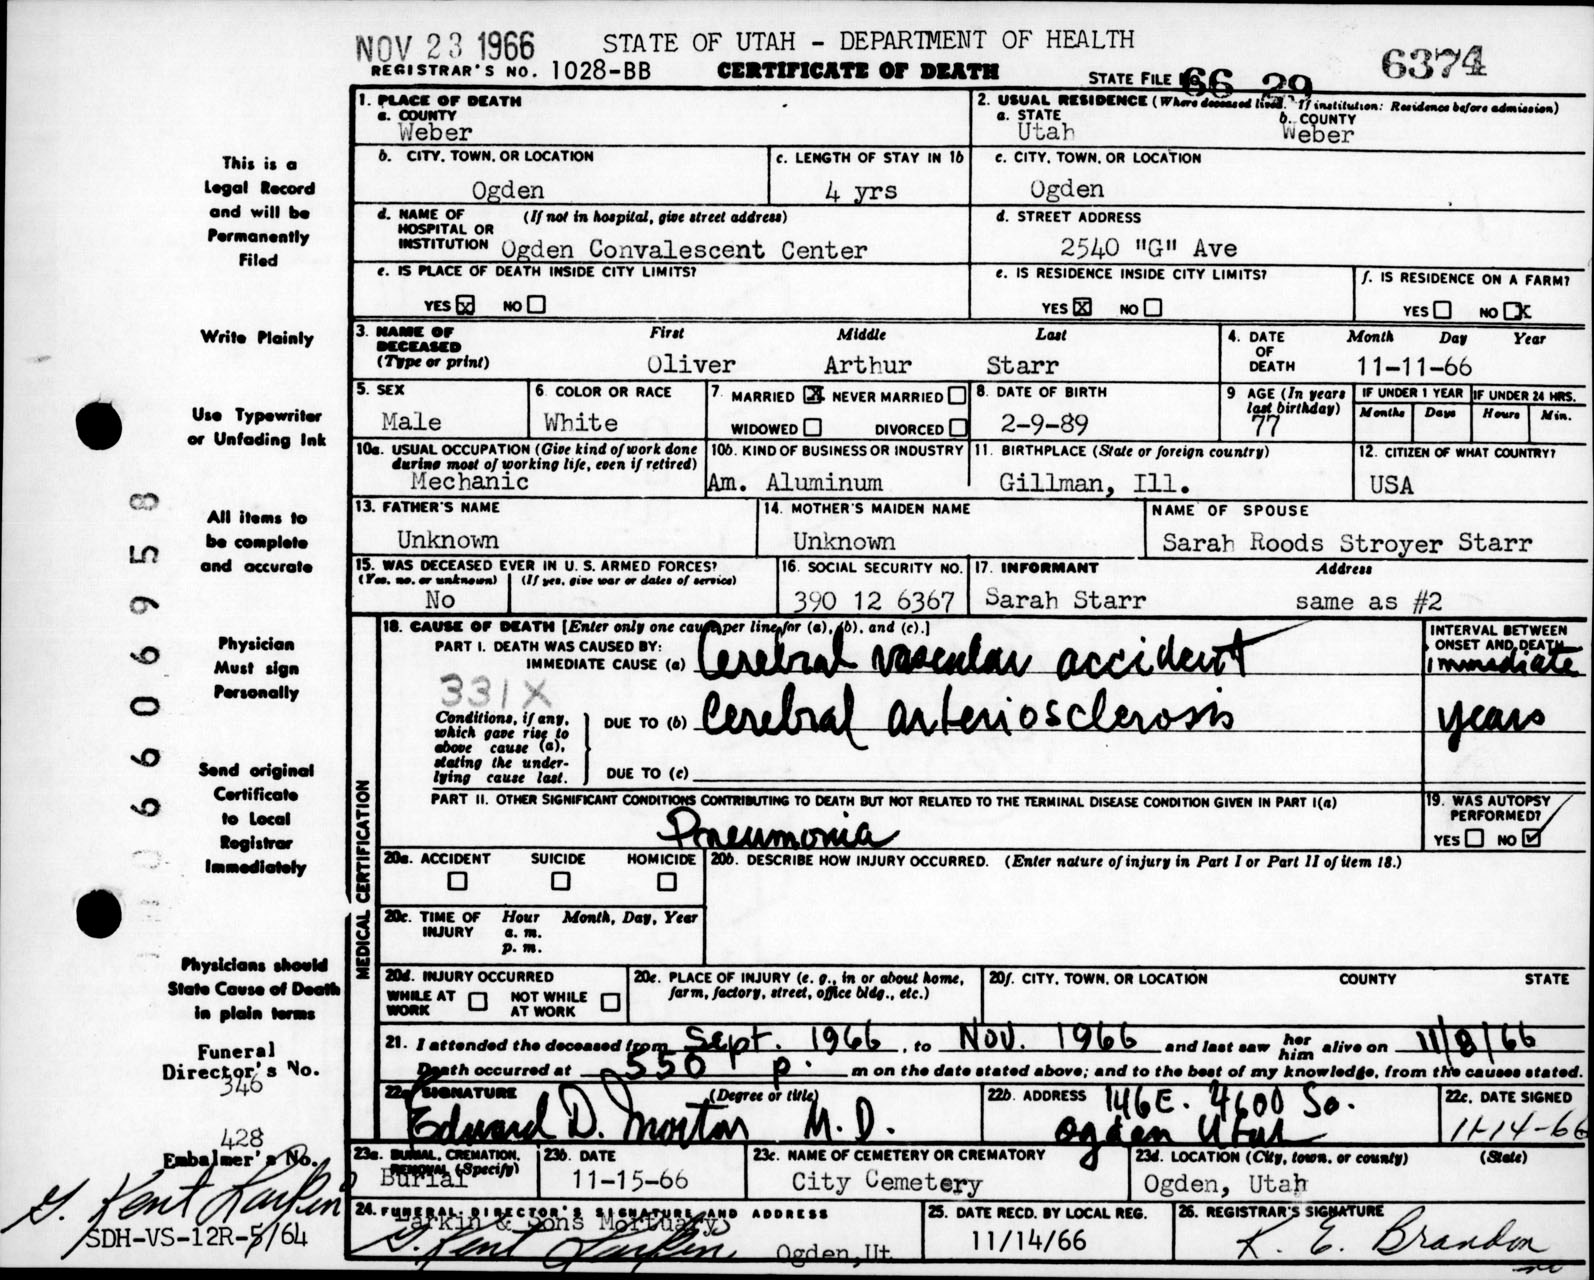 NOV 23 1966
STATE OF UTAH - DEPARTMENT OF HEALTH
6374
REGISTRAR'S NO. 1028-BB
CERTIFICATE OF DEATH
STATE FILE 66 29
1. PLACE OF DEATH
a. COUNTY
Weber
2. USUAL RESIDENCE (Where deceased lived. If institution: Residence before admission)
a. STATE
Utah
b. COUNTY
Weber
b. CITY, TOWN, OR LOCATION
Ogden
c. LENGTH OF STAY IN 1b
4 yrs
c. CITY, TOWN, OR LOCATION
Ogden
d. NAME OF HOSPITAL OR INSTITUTION (If not in hospital, give street address)
Ogden Convalescent Center
d. STREET ADDRESS
2540 "G" Ave
e. IS PLACE OF DEATH INSIDE CITY LIMITS?
YES ☒ NO ☐
e. IS RESIDENCE INSIDE CITY LIMITS?
YES ☒ NO ☐
f. IS RESIDENCE ON A FARM?
YES ☐ NO ☒
3. NAME OF DECEASED (Type or print)
First Middle Last
Oliver Arthur Starr
4. DATE OF DEATH
Month Day Year
11-11-66
5. SEX
Male
6. COLOR OR RACE
White
7. MARRIED ☒ NEVER MARRIED ☐
WIDOWED ☐ DIVORCED ☐
8. DATE OF BIRTH
2-9-89
9 AGE (In years last birthday)
77
IF UNDER 1 YEAR
Months Days
IF UNDER 24 HRS.
Hours Min.
10a. USUAL OCCUPATION (Give kind of work done during most of working life, even if retired)
Mechanic
10b. KIND OF BUSINESS OR INDUSTRY
Am. Aluminum
11. BIRTHPLACE (State or foreign country)
Gillman, Ill.
12. CITIZEN OF WHAT COUNTRY?
USA
13. FATHER'S NAME
Unknown
14. MOTHER'S MAIDEN NAME
Unknown
NAME OF SPOUSE
Sarah Roods Stroyer Starr
15. WAS DECEASED EVER IN U. S. ARMED FORCES?
(Yes, no, or unknown) (If yes, give war or dates of service)
No
16. SOCIAL SECURITY NO.
390 12 6367
17. INFORMANT Address
Sarah Starr same as #2
MEDICAL CERTIFICATION
18. CAUSE OF DEATH [Enter only one cause per line for (a), (b), and (c).]
PART I. DEATH WAS CAUSED BY:
IMMEDIATE CAUSE (a) Cerebral vascular accident
331X
Conditions, if any, which gave rise to above cause (a), stating the underlying cause last.
DUE TO (b) Cerebral arteriosclerosis
DUE TO (c)
INTERVAL BETWEEN ONSET AND DEATH
immediate
years
PART II. OTHER SIGNIFICANT CONDITIONS CONTRIBUTING TO DEATH BUT NOT RELATED TO THE TERMINAL DISEASE CONDITION GIVEN IN PART I(a)
Pneumonia
19. WAS AUTOPSY PERFORMED?
YES ☐ NO ☑
20a. ACCIDENT SUICIDE HOMICIDE
☐ ☐ ☐
20b. DESCRIBE HOW INJURY OCCURRED. (Enter nature of injury in Part I or Part II of item 18.)
20c. TIME OF INJURY Hour Month, Day, Year
a. m.
p. m.
20d. INJURY OCCURRED
WHILE AT WORK ☐ NOT WHILE AT WORK ☐
20e. PLACE OF INJURY (e. g., in or about home, farm, factory, street, office bldg., etc.)
20f. CITY, TOWN, OR LOCATION COUNTY STATE
21. I attended the deceased from Sept. 1966, to Nov. 1966 and last saw her him alive on 11/8/66
Death occurred at 550 p. m on the date stated above; and to the best of my knowledge, from the causes stated.
22a. SIGNATURE (Degree or title)
Edward D. Morton M. D.
22b. ADDRESS 146 E. 4600 So.
Ogden Utah
22c. DATE SIGNED
11-14-66
23a. BURIAL, CREMATION, REMOVAL (Specify)
Burial
23b. DATE
11-15-66
23c. NAME OF CEMETERY OR CREMATORY
City Cemetery
23d. LOCATION (City, town, or county) (State)
Ogden, Utah
24. FUNERAL DIRECTOR'S SIGNATURE AND ADDRESS
Larkin & Sons Mortuary
G. Kent Larkin Ogden, Ut
25. DATE RECD. BY LOCAL REG.
11/14/66
26. REGISTRAR'S SIGNATURE
K. E. Brandon
This is a
Legal Record
and will be
Permanently
Filed
Write Plainly
Use Typewriter
or Unfading Ink
All items to
be complete
and accurate
Physician
Must sign
Personally
Send original
Certificate
to Local
Registrar
Immediately
Physicians should
State Cause of Death
in plain terms
Funeral
Director's No.
346
428
Embalmer's No.
G. Kent Larkin
SDH-VS-12R-5/64
6606958